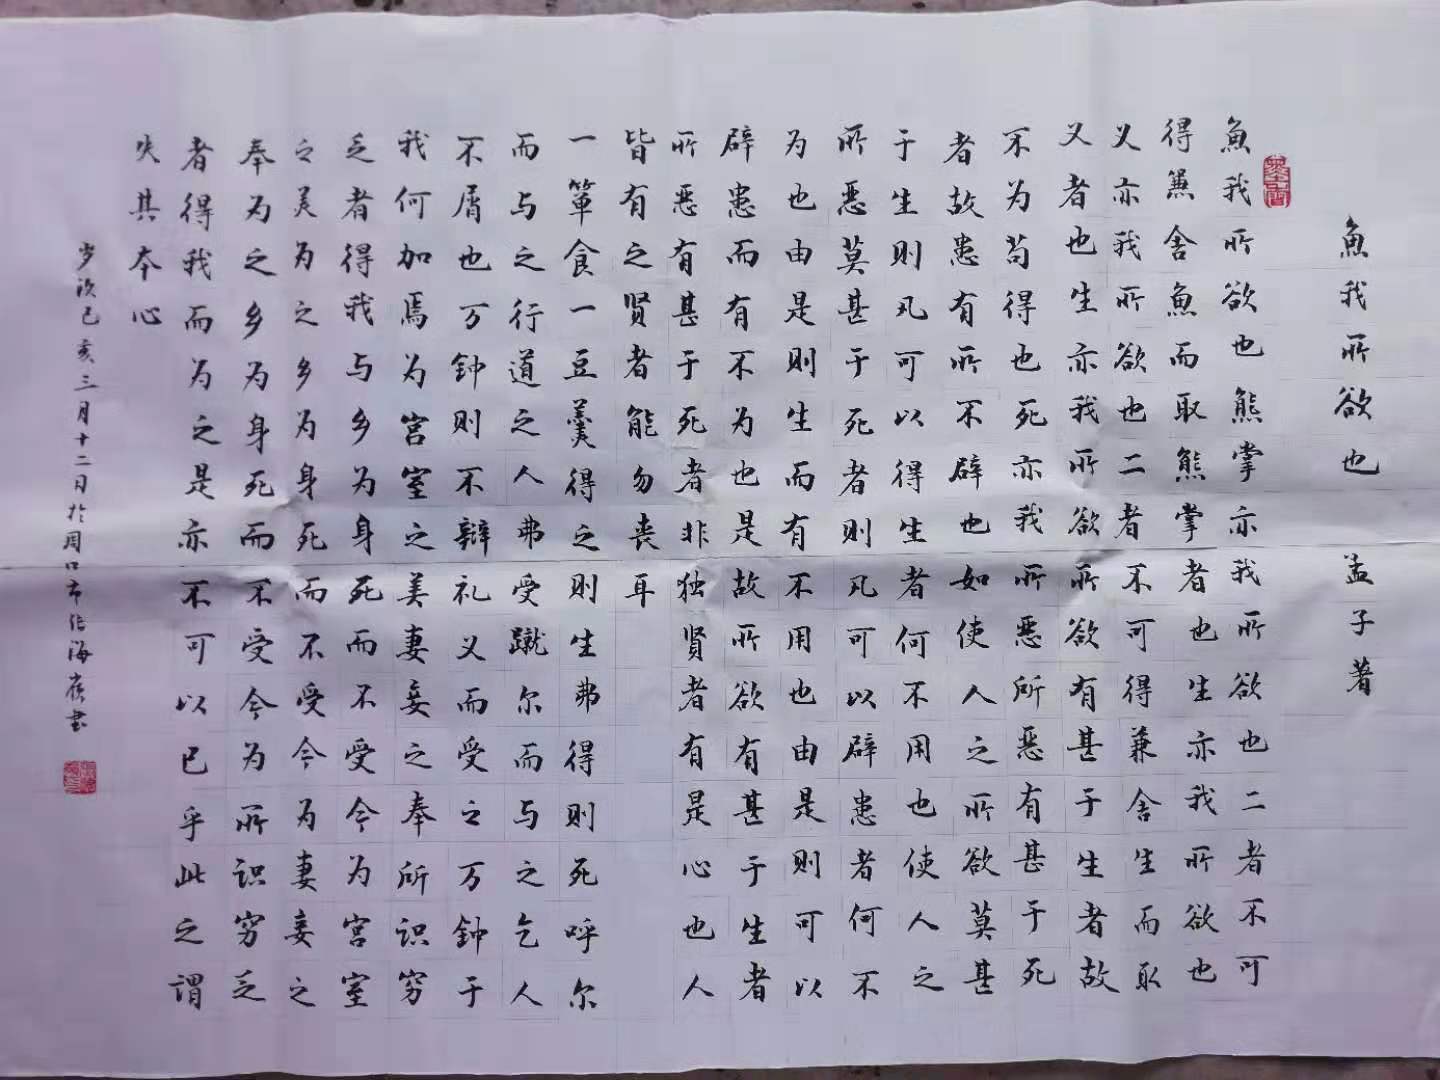 魚我所欲也 孟子著
魚我所欲也熊掌亦我所欲也二者不可
得兼舍魚而取熊掌者也生亦我所欲也
义亦我所欲也二者不可得兼舍生而取
义者也生亦我所欲所欲有甚于生者故
不为苟得也死亦我所恶所恶有甚于死
者故患有所不辟也如使人之所欲莫甚
于生则凡可以得生者何不用也使人之
所恶莫甚于死者则凡可以辟患者何不
为也由是则生而有不用也由是则可以
辟患而有不为也是故所欲有甚于生者
所恶有甚于死者非独贤者有是心也人
皆有之贤者能勿丧耳
一箪食一豆羹得之则生弗得则死呼尔
而与之行道之人弗受蹴尔而与之乞人
不屑也万钟则不辩礼义而受之万钟于
我何加焉为宫室之美妻妾之奉所识穷
乏者得我与乡为身死而不受今为宫室
之美为之乡为身死而不受今为妻妾之
奉为之乡为身死而不受今为所识穷乏
者得我而为之是亦不可以已乎此之谓
失其本心
岁次己亥三月十二日於周口市张海书